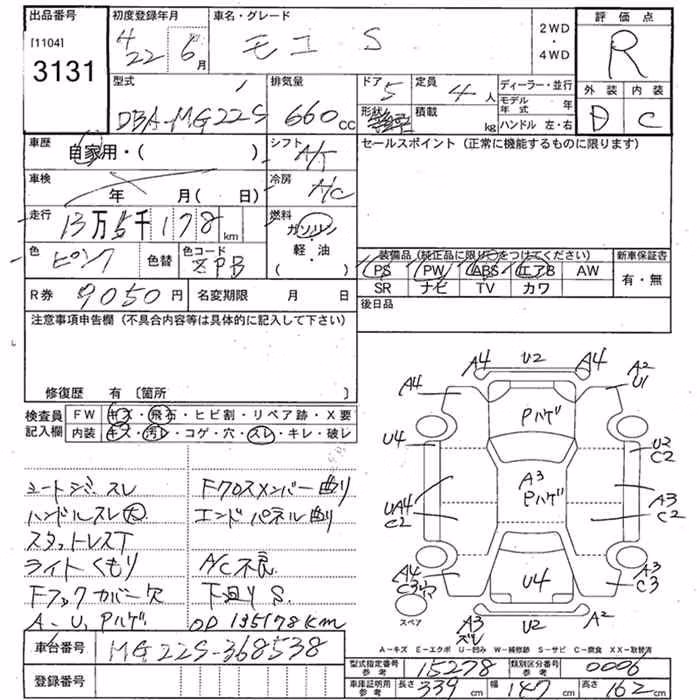 出品番号 [1104] 3131
初度登録年月 H22年6月
車名・グレード モコ S
2WD・4WD
評価点 R
外装 D 内装 C
型式 DBA-MG22S
排気量 660 CC
ドア 5
形状
定員 4人
積載 kg
ディーラー・並行
モデル年式 年
ハンドル 左・右
車歴 自家用・( )
シフト A/T
車検 年 月( 日)
冷房 A/C
走行 13万5千178 km
燃料 ガソリン・軽・油 ( )
色 ピンク 色替 色コード ZPB
R券 9050円 名変期限 月 日
セールスポイント (正常に機能するものに限ります)
装備品 (純正品に限り○をつけてください) 新車保証書
PS PW ABS エアB AW 有・無
SR ナビ TV カワ
後日品
注意事項申告欄 (不具合内容等は具体的に記入して下さい)
修復歴 有 〔箇所
検査員記入欄
FW キズ・飛石・ヒビ割・リペア跡・X要
内装 キズ・汚レ・コゲ・穴・スレ・キレ・破レ
シートシミ・スレ
ハンドルスレ大
スタットレスT
ライトくもり
Fフックカバー欠
A-U,Pハゲ
Fクロスメンバー曲り
エンドパネル曲り
A/C不良
下廻りS.
OD 135178km
A4 U2 A4
A4 A2 U1
Pハゲ
U4 U2 C2
A3 Pハゲ
UA4 C2 A3 C2
A4 C3穴 A3 C3
U4
スペア
A3 ズレ U2 A2
A-キズ E-エクボ U-凹み W-補修跡 S-サビ C-腐食 XX-取替済
車台番号 MG22S-368538
登録番号
型式指定番号 参考 15278 類別区分番号 参考 0006
車庫証明用 参考 長さ 339 cm 幅 147 cm 高さ 162 cm